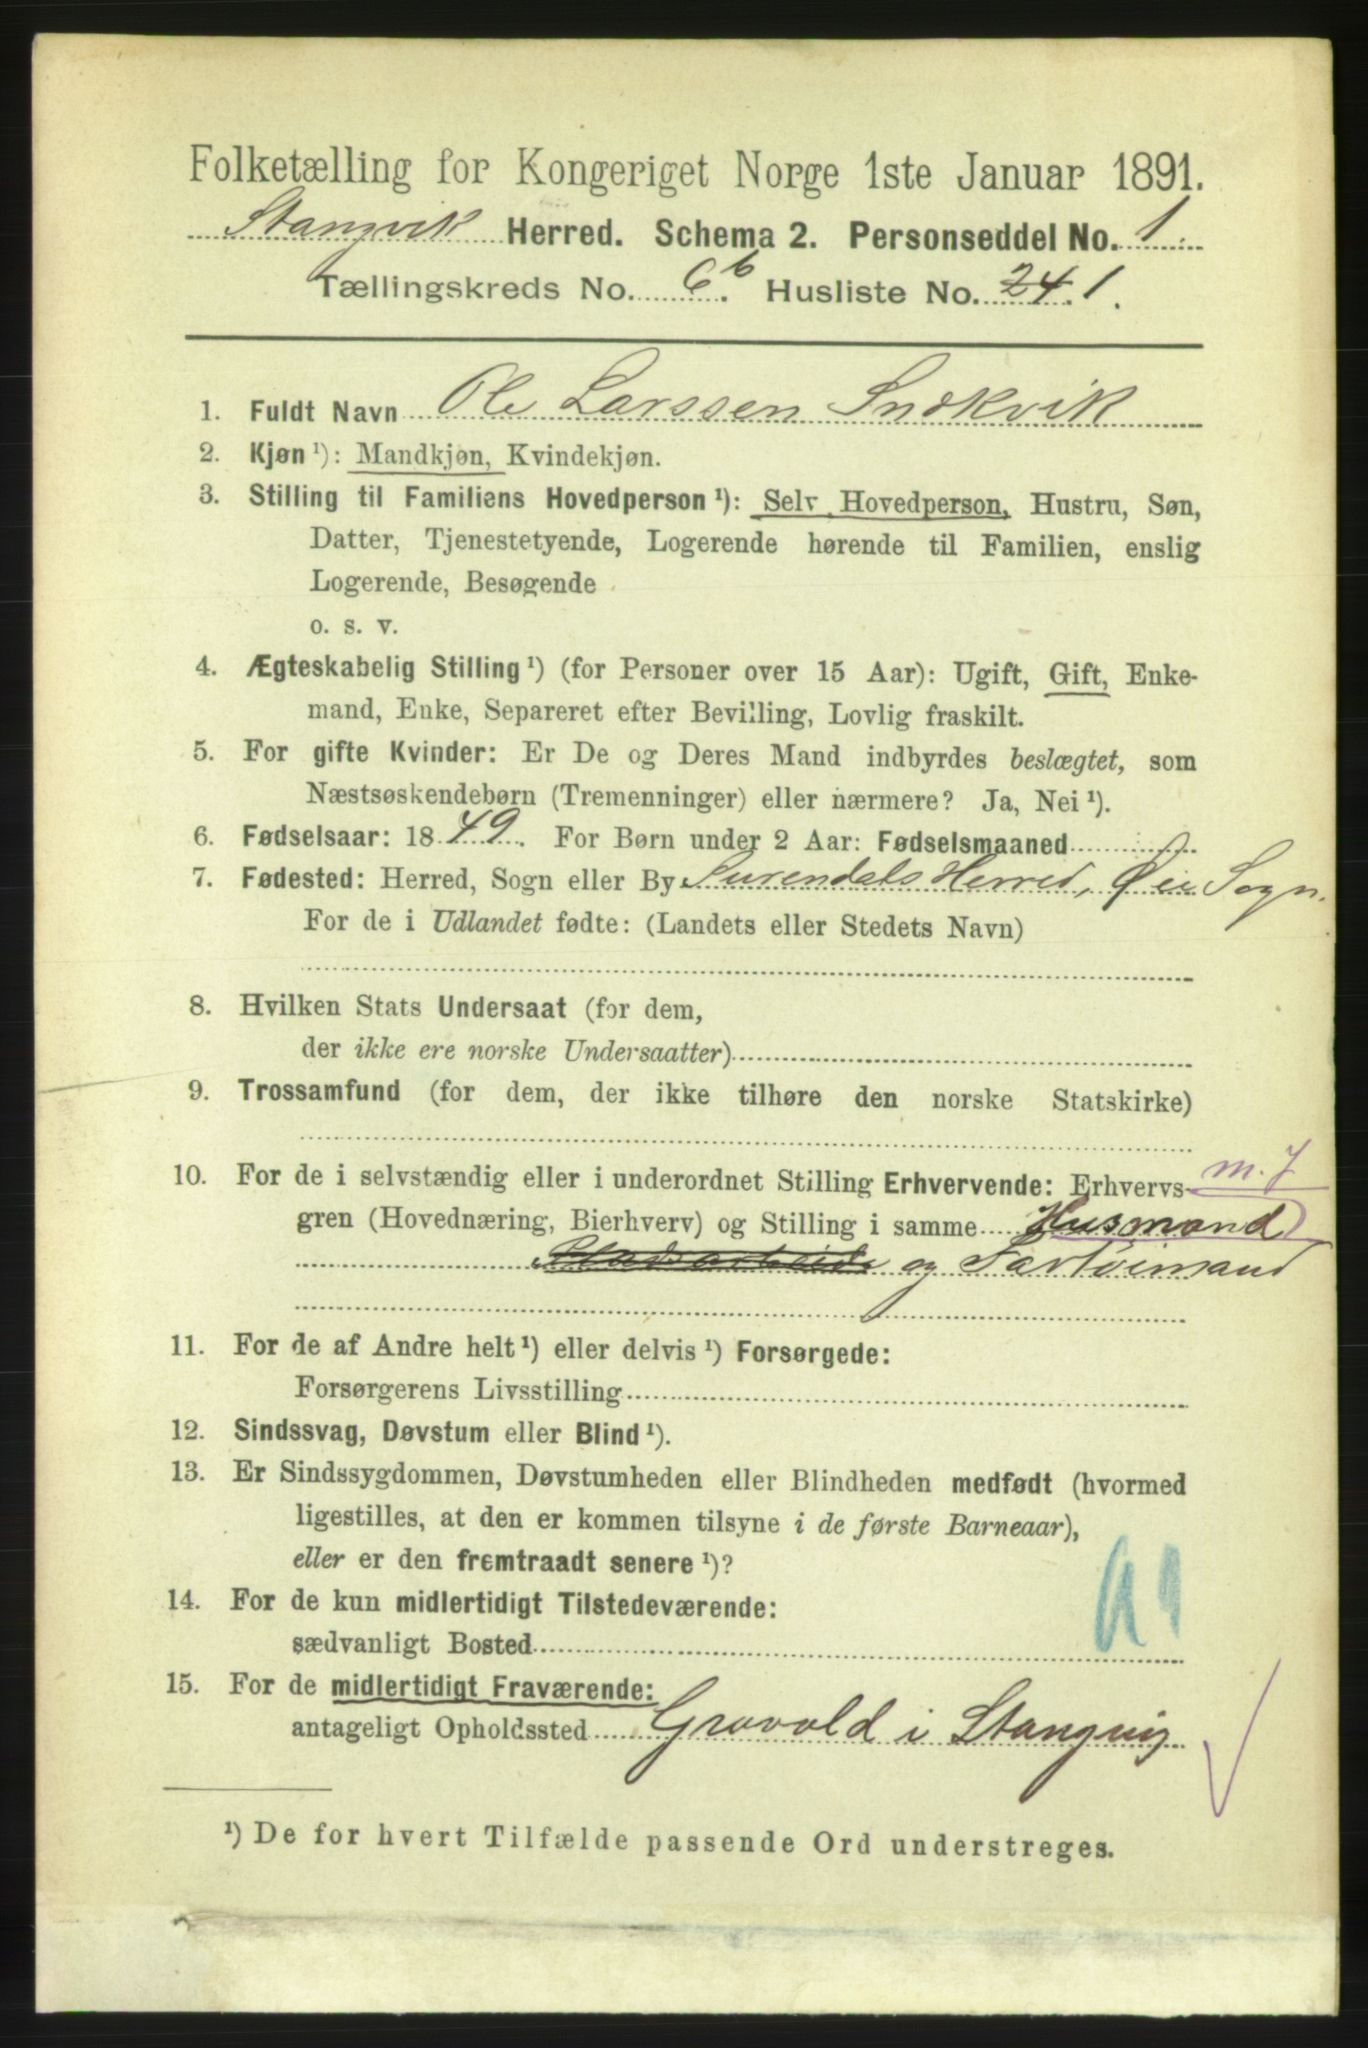 Folketælling for Kongeriget Norge 1ste Januar 1891.
Stangvik Herred. Schema 2. Personseddel No. 1.
Tællingskreds No. 6b. Husliste No. 24.1.
1. Fuldt Navn Ole Larssen Snekvik
2. Kjøn ¹): Mandkjøn, Kvindekjøn.
3. Stilling til Familiens Hovedperson ¹): Selv Hovedperson, Hustru, Søn,
Datter, Tjenestetyende, Logerende hørende til Familien, enslig
Logerende, Besøgende
o. s. v.
4. Ægteskabelig Stilling ¹) (for Personer over 15 Aar): Ugift, Gift, Enke-
mand, Enke, Separeret efter Bevilling, Lovlig fraskilt.
5. For gifte Kvinder: Er De og Deres Mand indbyrdes beslægtet, som
Næstsøskendebørn (Tremenninger) eller nærmere? Ja, Nei ¹).
6. Fødselsaar: 1849. For Børn under 2 Aar: Fødselsmaaned
7. Fødested: Herred, Sogn eller By Surendals Herred, Øie Sogn.
For de i Udlandet fødte: (Landets eller Stedets Navn)
8. Hvilken Stats Undersaat (for dem,
der ikke ere norske Undersaatter)
9. Trossamfund (for dem, der ikke tilhøre den norske Statskirke)
10. For de i selvstændig eller i underordnet Stilling Erhvervende: Erhvervs- m. J
gren (Hovednæring, Bierhverv) og Stilling i samme Husmand
og Fartøimand
11. For de af Andre helt ¹) eller delvis ¹) Forsørgede:
Forsørgerens Livsstilling
12. Sindssvag, Døvstum eller Blind ¹).
13. Er Sindssygdommen, Døvstumheden eller Blindheden medfødt (hvormed
ligestilles, at den er kommen tilsyne i de første Barneaar),
eller er den fremtraadt senere ¹)?
14. For de kun midlertidigt Tilstedeværende:
sædvanligt Bosted
15. For de midlertidigt Fraværende:
antageligt Opholdssted Gravold i Stangvig
¹) De for hvert Tilfælde passende Ord understreges.